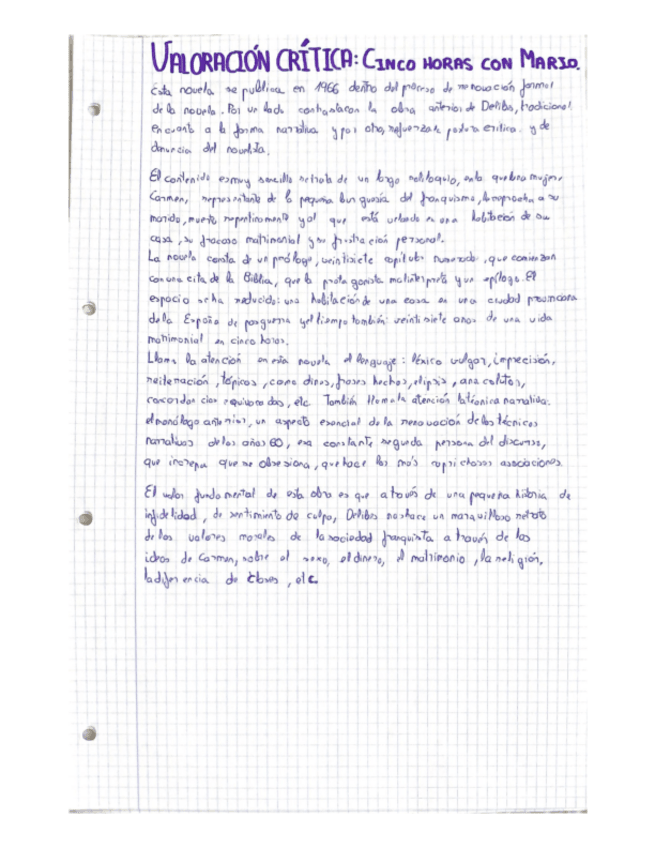 VALORACIÓN CRÍTICA: CINCO HORAS CON MARIO.
Esta novela se publica en 1966 dentro del proceso de renovación formal
de la novela. Por un lado contrasta con la obra anterior de Delibes, tradicional
en cuanto a la forma narrativa y por otro, refuerza su postura crítica y de
denuncia del novelista.
El contenido es muy sencillo se trata de un largo soliloquio, en la que una mujer,
Carmen, representante de la pequeña burguesía del franquismo, le reprocha a su
marido, muerto repentinamente y al que está velando en una habitación de su
casa, su fracaso matrimonial y su frustración personal.
La novela consta de un prólogo, veintisiete capítulos numerados, que comienzan
con una cita de la Biblia, que la protagonista malinterpreta y un epílogo. El
espacio se ha reducido: una habitación de una casa en una ciudad provinciana
de la España de posguerra y el tiempo también: veintisiete años de una vida
matrimonial en cinco horas.
Llama la atención en esta novela el lenguaje: léxico vulgar, imprecisión,
reiteración, tópicos, como dices, frases hechas, elipsis, anacolutos,
concordancias equivocadas, etc. También llama la atención la técnica narrativa:
el monólogo interior, un aspecto esencial de la renovación de las técnicas
narrativas de los años 60, esa constante segunda persona del discurso,
que increpa que se obsesiona, que hace las más caprichosas asociaciones.
El valor fundamental de esta obra es que a través de una pequeña historia de
infidelidad, de sentimiento de culpa, Delibes nos hace un maravilloso retrato
de los valores morales de la sociedad franquista a través de las
ideas de Carmen, sobre el sexo, el dinero, el matrimonio, la religión,
la diferencia de clases, etc.